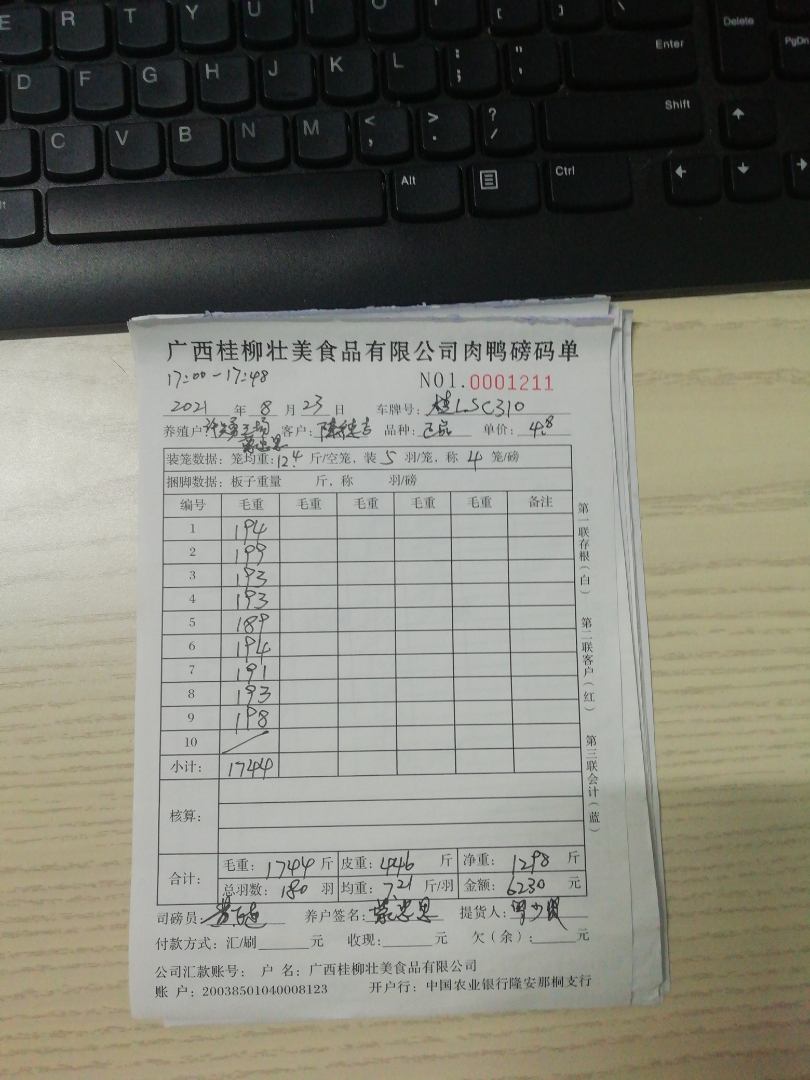 E R T Y U I O { [ } ] | \ Delete
D F G H J K L : ; " ' Enter PgDn
C V B N M < , > . ? / Shift
Alt Ctrl
广西桂柳壮美食品有限公司肉鸭磅码单
17:00-17:48 NO1.0001211
2021 年 8 月 23 日 车牌号: 桂LSC310
养殖户: 客户: 品种: 正品 单价: 4.8
蒙忠思
装笼数据: 笼均重: 12.4 斤/空笼, 装 5 羽/笼, 称 4 笼/磅
捆脚数据: 板子重量 斤, 称 羽/磅
编号 毛重 毛重 毛重 毛重 毛重 备注
1 194
2 199
3 193
4 193
5 189
6 194
7 191
8 193
9 198
10
小计: 1744
核算:
合计: 毛重: 1744 斤 皮重: 446 斤 净重: 1298 斤
总羽数: 180 羽 均重: 7.21 斤/羽 金额: 6230 元
司磅员: 养户签名: 蒙忠思 提货人:
付款方式: 汇/刷 元 收现: 元 欠(余): 元
公司汇款账号: 户 名: 广西桂柳壮美食品有限公司
账 户: 20038501040008123 开户行: 中国农业银行隆安那桐支行
第一联存根(白)
第二联客户(红)
第三联会计(蓝)